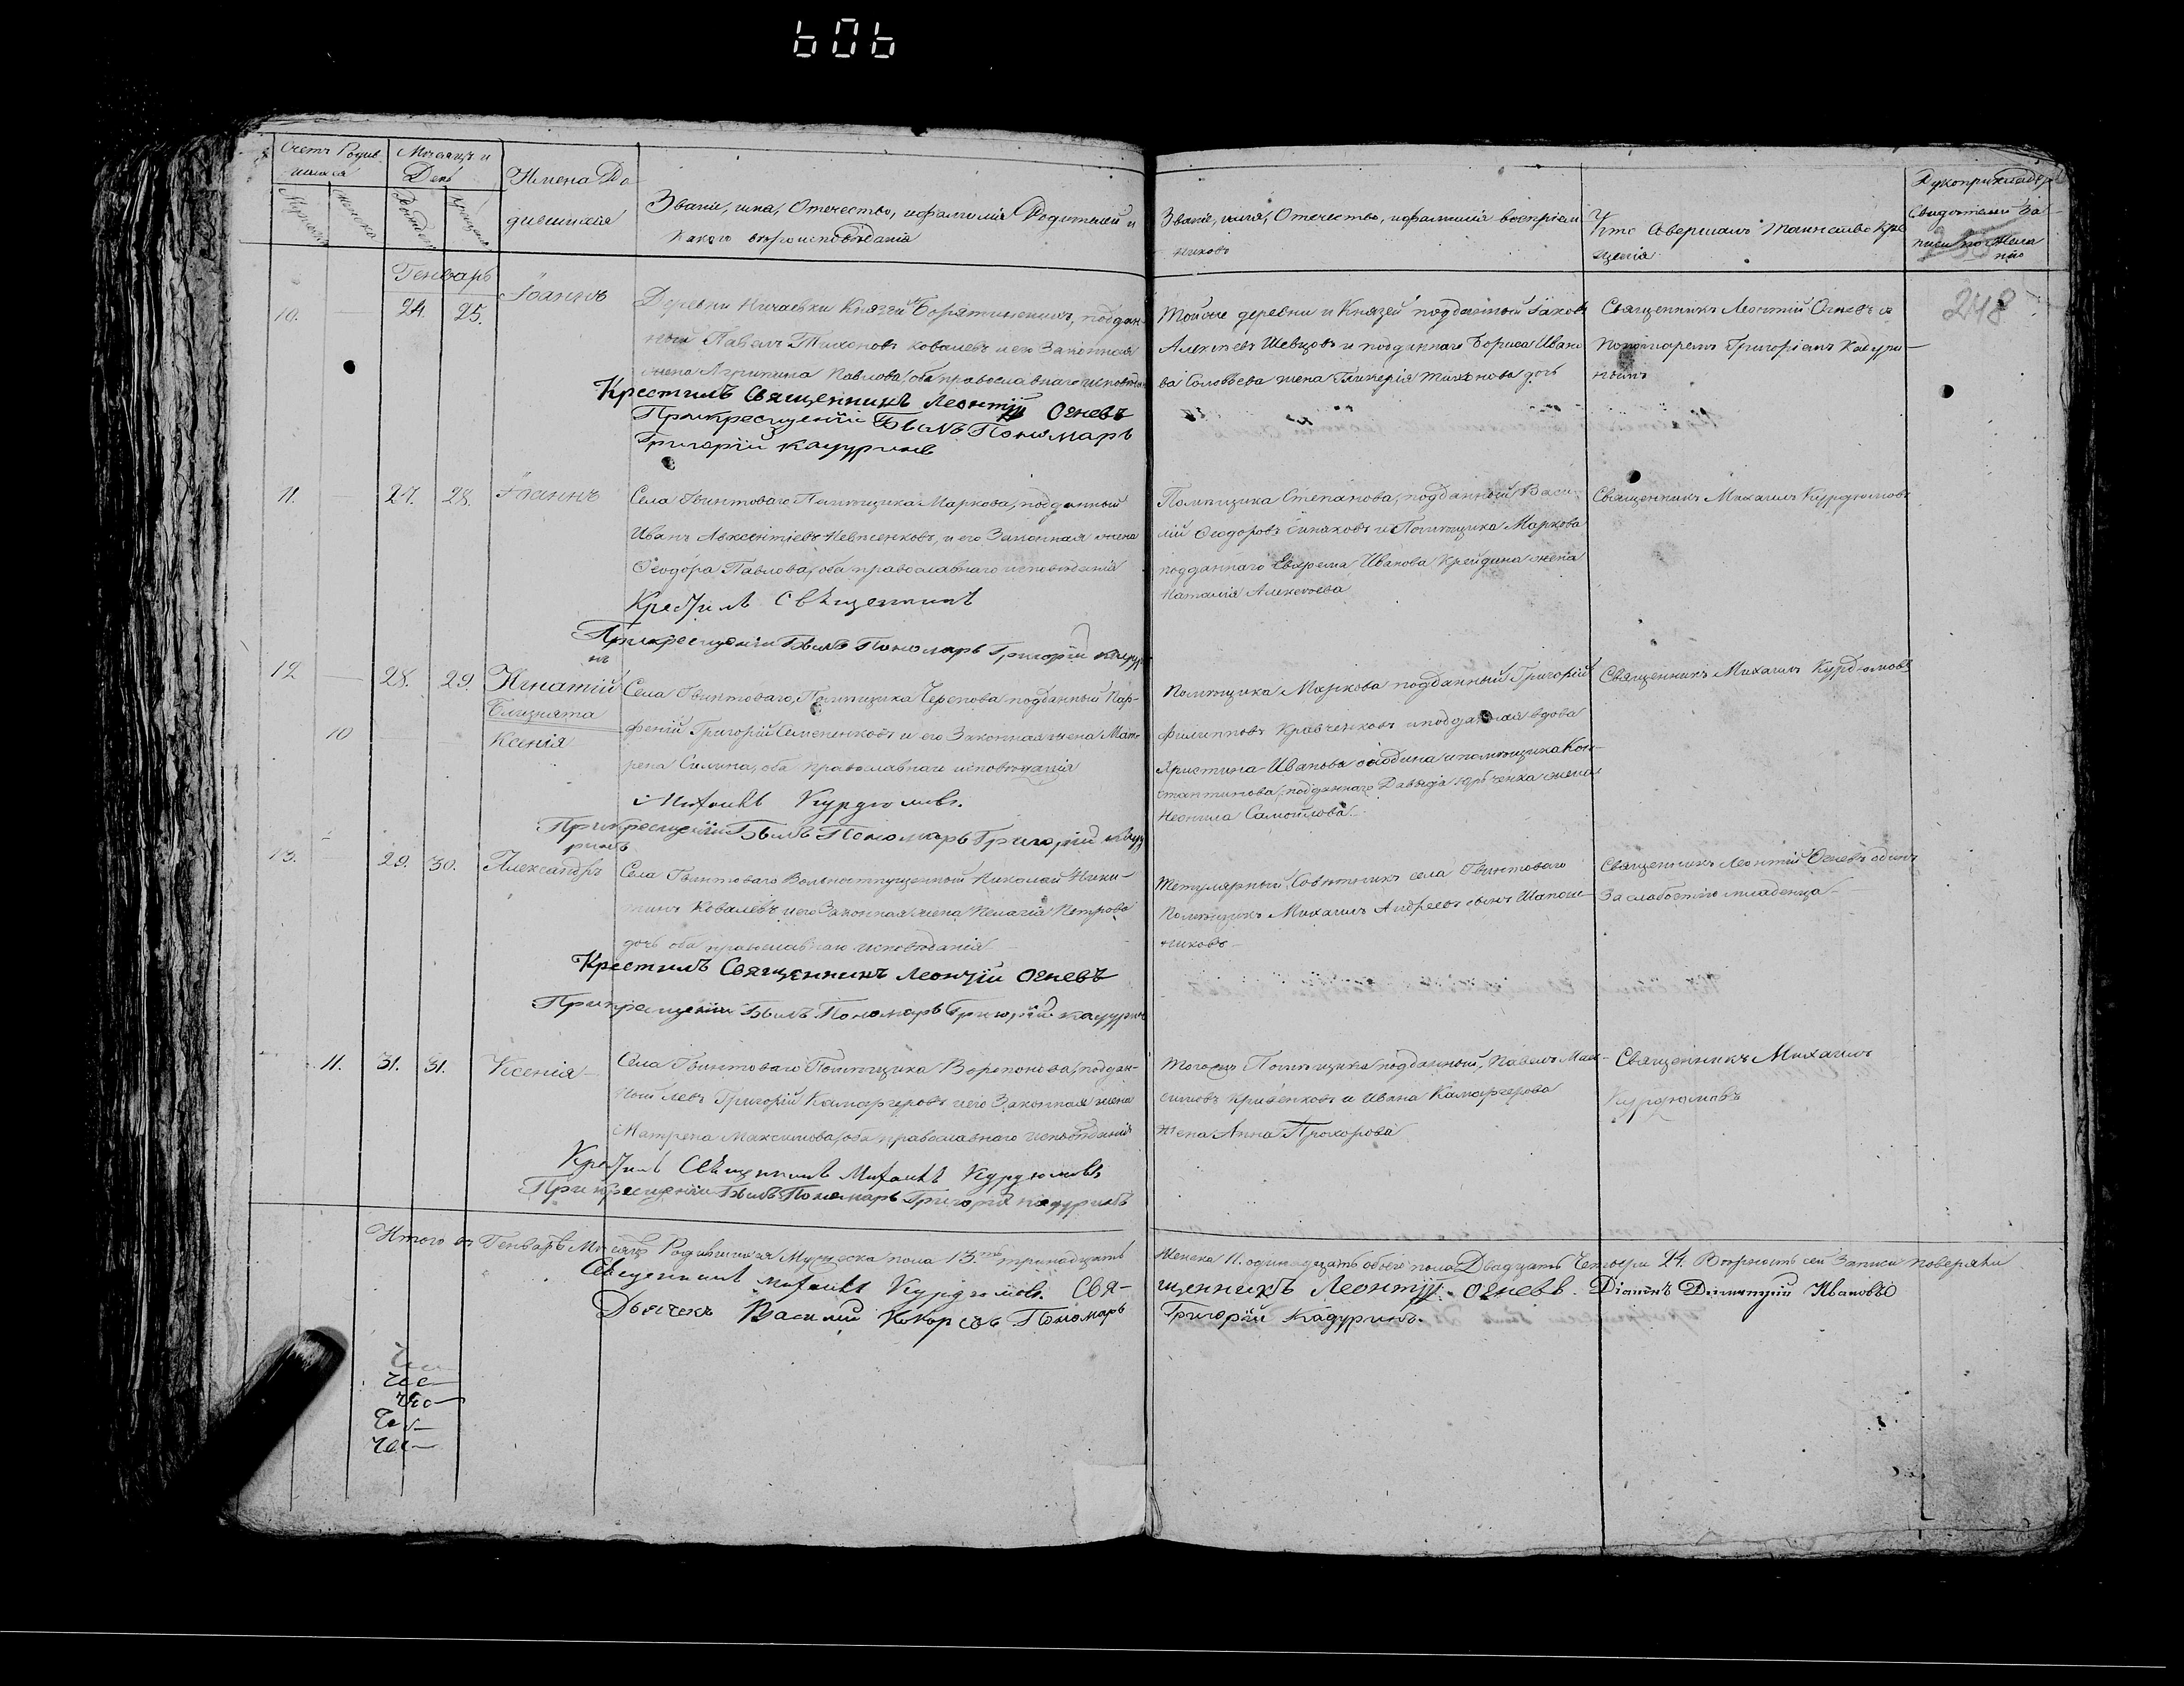 606
Счетъ Родив
шихся
Мѣсяцъ и
День
Имена Ро
дившихся
Званіе, имя, Отечество, и фамилія Родителей и
какого вѣроисповѣданія
Званіе, имя, Отечество, и фамилія воспріем
никовъ
Кто Совершалъ таинство Кре
щенія
Рукоприкладст
Свидетелей За
писи по жела
нію
248
Генварь
10.
24.
25.
Іоаннъ
Деревни Ничаевки Князей Борятинскихъ, поддан-
ный Павелъ Тихоновъ Ковалевъ и его Законная
жена Агрипина Павлова, оба православнаго исповѣда
Крестилъ Священникъ Леонтій Огневъ
При крещеніи Былъ Пономарь
Григорій Кадуринъ
Тойже деревни и Князей подданный Іаковъ
Алексѣевъ Шевцовъ и подданнаго Бориса Ивано
ва Соловьева жена Гликерія Тихонова дочь
Священникъ Леонтій Огневъ съ
Пономаремъ Григоріемъ Кадури-
нымъ
11.
27.
28.
Іоаннъ
Села Гвинтоваго Помѣщика Маркова, подданный
Иванъ Авксентіевъ Невженковъ, и его Законная жена
Ѳеодора Павлова, оба православнаго исповѣданія
Крестилъ Священникъ
При крещеніи Былъ Пономарь Григорій Кадур
нъ
Помѣщика Степанова, подданный Васи-
лій Ѳеодоровъ Синяковъ и Помѣщика Маркова
подданнаго Евфрема Иванова Крейдина жена
Наталія Алексѣева
Священникъ Михаилъ Курдюмовъ
12
28.
29.
Игнатій
Близнята
10
Ксенія
Села Гвинтоваго, Помѣщика Черепова подданный Пар-
феній Григорій Семененковъ и его Законная жена Мат-
рена Силина, оба православнаго исповѣданія
Михаилъ Курдюмовъ.
При крещеніи Былъ Пономарь Григорій Каду
ринъ
Помѣщика Маркова подданный Григорій
Филипповъ Кравченковъ и подданная вдова
Христина Иванова и помѣщика Кон-
стантинова, подданнаго Давыда жена
Неонила Самойлова.
Священникъ Михаилъ Курдюмовъ
13.
29.
30.
Александръ
Села Гвинтоваго Вольноотпущенный Николай Ники-
тинъ Ковалевъ и его Законная жена Пелагія Петрова
дочь оба православнаго исповѣданія
Крестилъ Священникъ Леонтій Огневъ
При крещеніи Былъ Пономарь Григорій Кадуринъ
Титулярный Совѣтникъ села Гвинтоваго
Помѣщикъ Михаилъ Андреевъ сынъ Шапош-
никовъ
Священникъ Леонтій Огневъ одинъ
За слабостію младенца
11.
31.
31.
Ксенія
Села Гвинтоваго Помѣщика Воропонова, поддан-
ный Левъ Григорій Камаргеровъ и его Законная жена
Матрена Максимова, оба православнаго исповѣданія
Крестилъ Священникъ Михаилъ Курдюмовъ
При крещеніи Былъ Пономарь Григорій Кадуринъ
Тогожъ Помѣщика подданный, Павелъ Мак-
симовъ Кривенковъ и Ивана Камаргерова
жена Анна Прохорова
Священникъ Михаилъ
Курдюмовъ
Итого въ Генварѣ Мѣсяцѣ Родившихся Мужеска пола 13.ть тринадцать
Женска 11. одинадцать обоего пола Двадцать Четыри 24. Вѣрность сей Записи повѣряли
Священникъ Михаилъ Курдюмовъ. Свя-
щенникъ Леонтій Огневъ. Діаконъ Димитрій Ивановъ
Дьячекъ Василій Кокоревъ Пономарь
Григорій Кадуринъ.